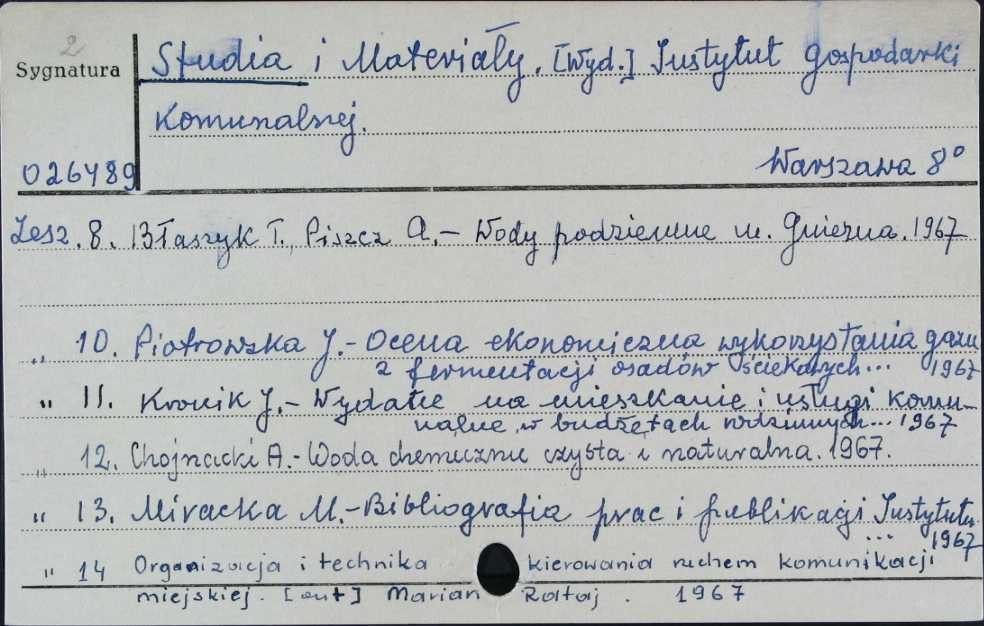 2
Sygnatura
Studia i Materiały. [Wyd.] Instytut Gospodarki
Komunalnej.
026489
Warszawa 8°
Zesz. 8. Błaszyk T., Piszcz A. – Wody podziemne m. Gniezna. 1967
„ 10. Piotrowska J. – Ocena ekonomiczna wykorzystania gazu
z fermentacji osadów ściekowych... 1967
„ 11. Kronik J. – Wydatki na mieszkanie i usługi komu-
nalne w budżetach rodzinnych... 1967
„ 12. Chojnacki A. – Woda chemicznie czysta i naturalna. 1967.
„ 13. Miracka M. – Bibliografia prac i publikacji Instytutu
... 1967
„ 14 Organizacja i technika kierowania ruchem komunikacji
miejskiej. [aut] Marian Rataj. 1967